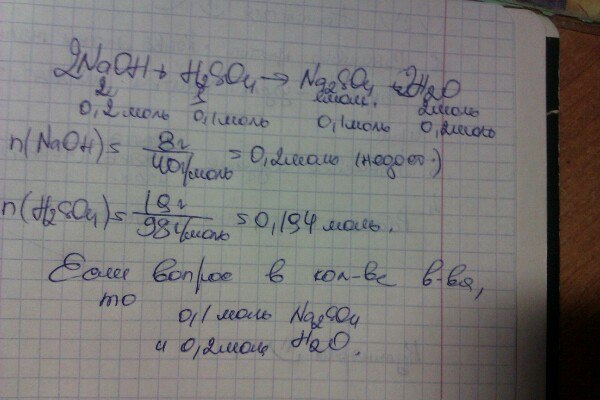 2NaOH + H2SO4 → Na2SO4 + 2H2O
2 1 1моль. 2моль
0,2 моль 0,1 моль 0,1 моль 0,2 моль
n(NaOH) = 8г / 40г/моль = 0,2моль (недост.)
n(H2SO4) = 19г / 98г/моль = 0,194 моль.
Если вопрос в кол-ве в-ва,
то
0,1 моль Na2SO4
и 0,2моль H2O.